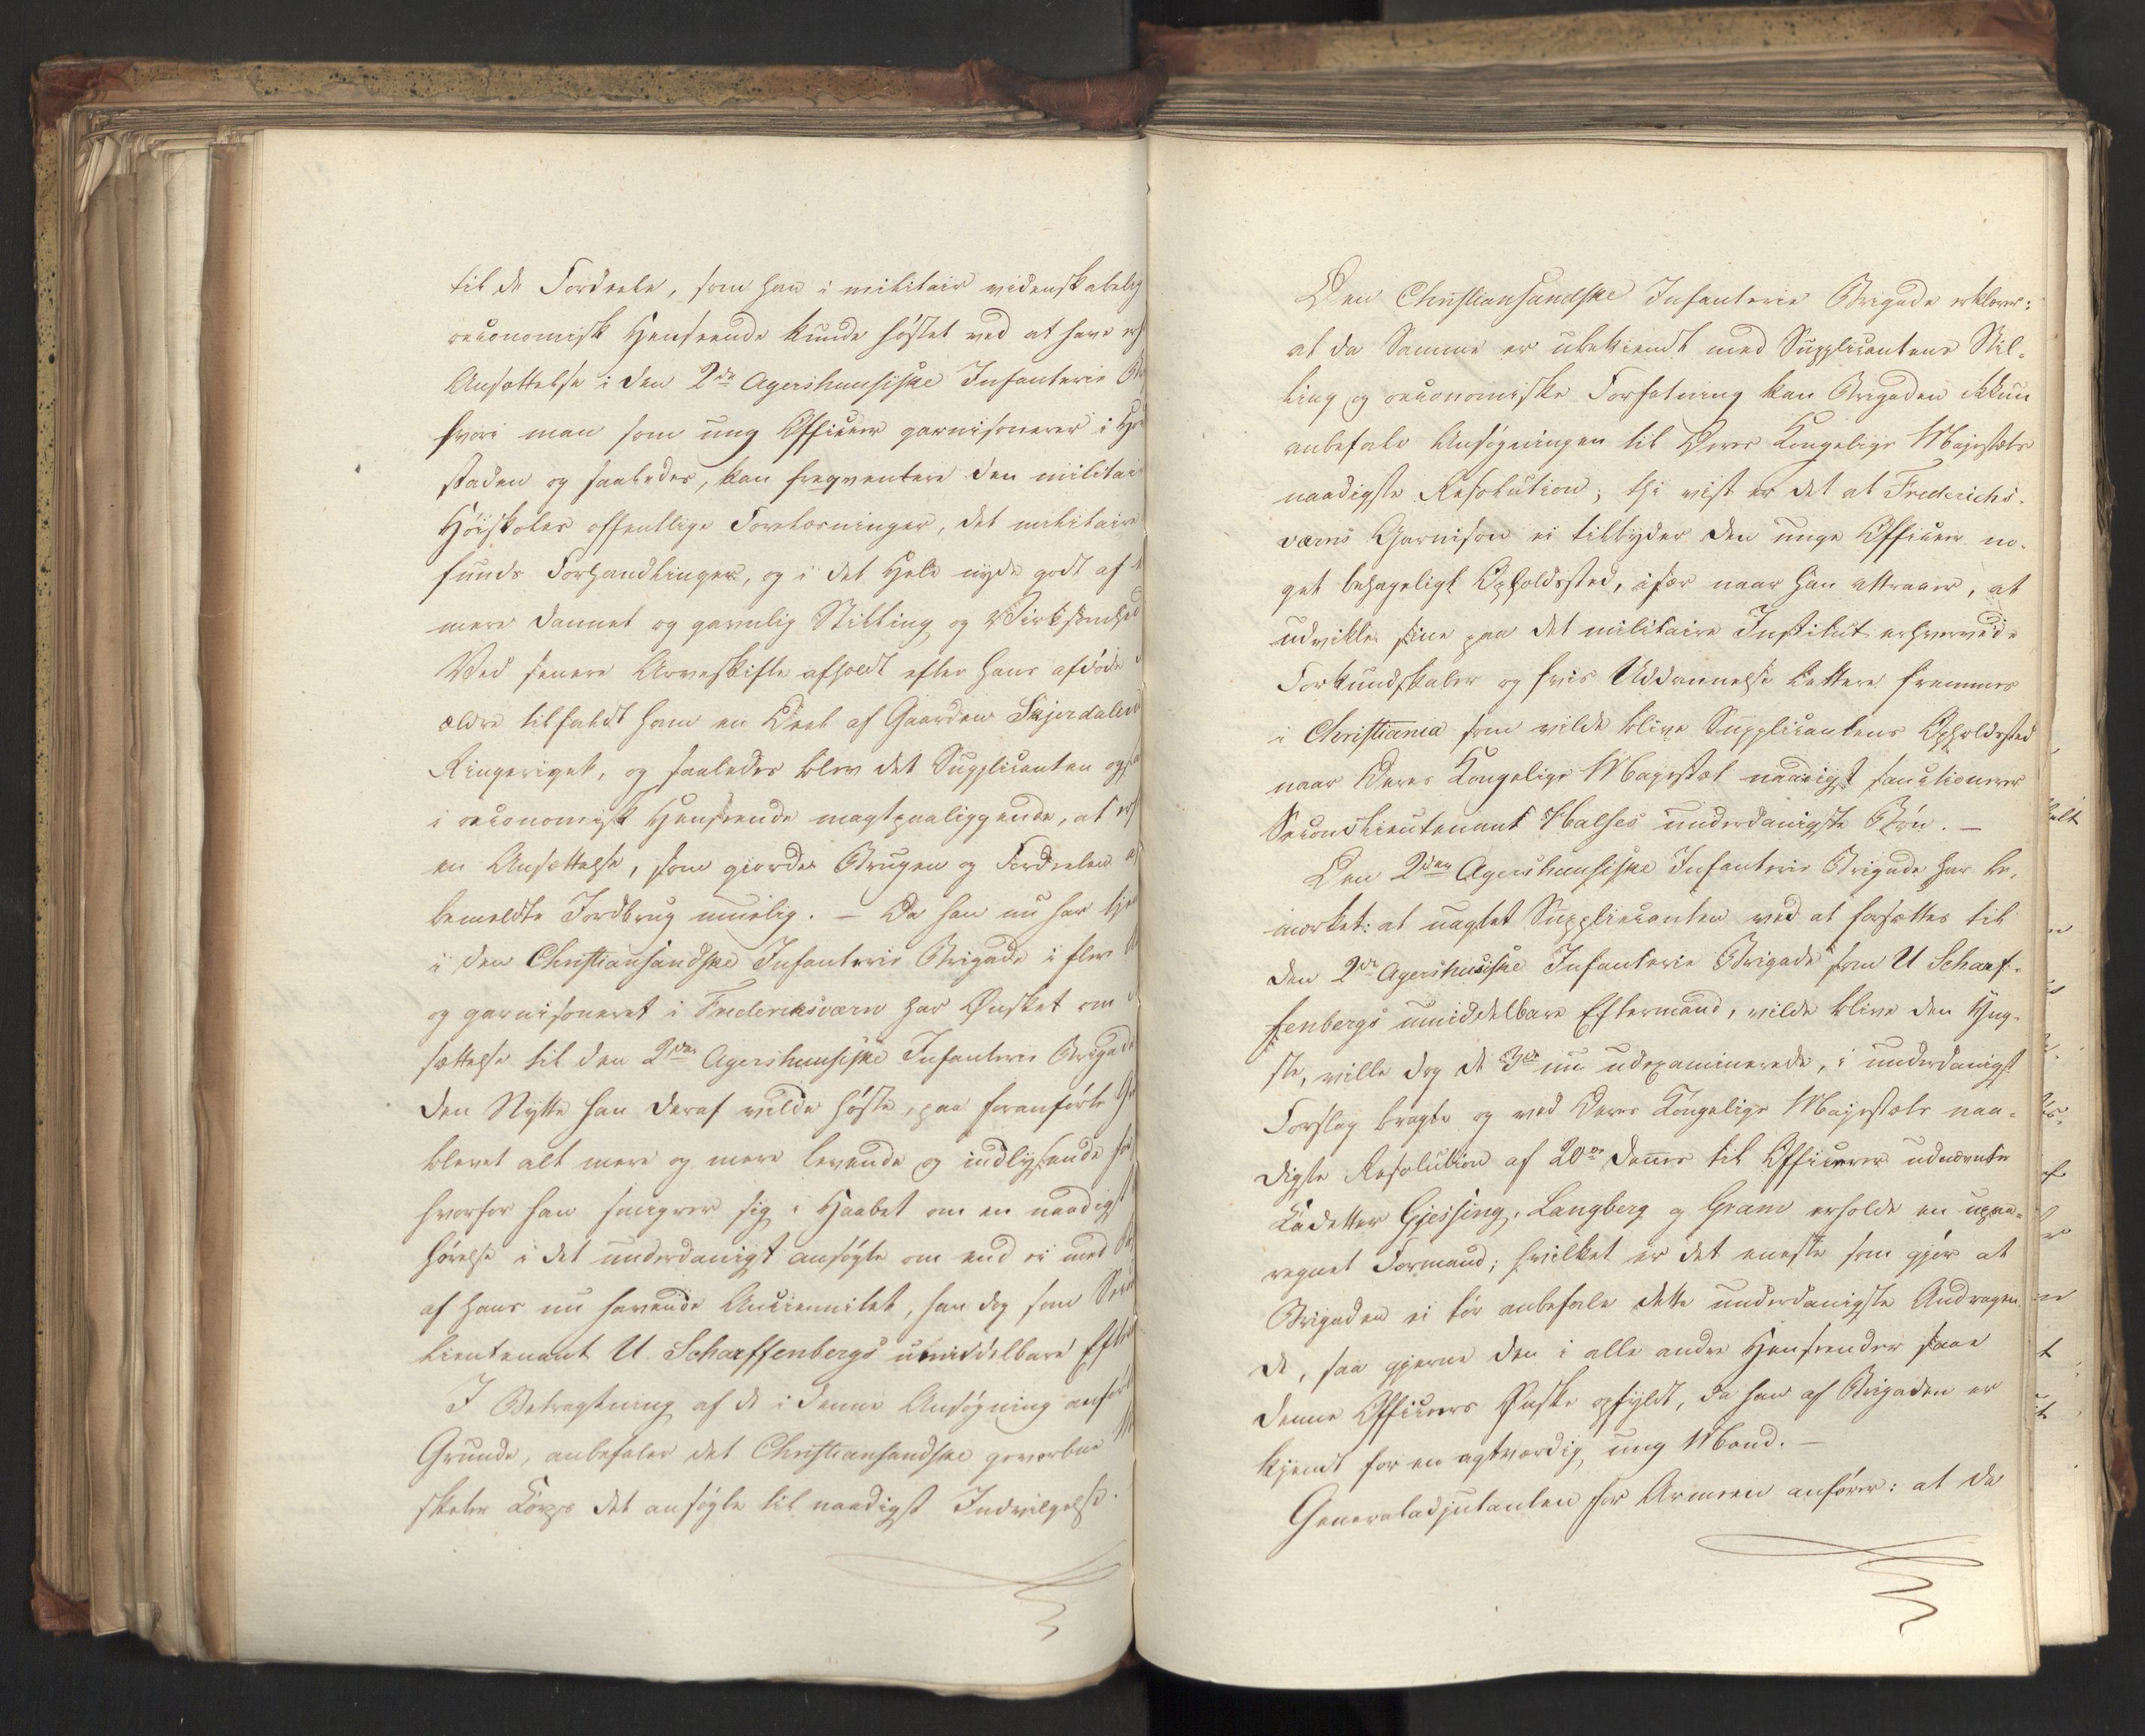 til de Fordeele, som han i militair videnskabelig
oeconomisk Henseende kunde høstet ved at have erh
Ansættelse i den 2de Agershuusiske Infanterie Br
hvori man som ung Officeer garnisonerer i Ho
staden og saaledes, kan freqventere den militai
Høiskoles offentlige Forelæsninger, det militaire
funds Forhandlinger, og i det Hele nyde godt af
mere dannet og gavnlig Stilling og Virksomhed
Ved senere Arveskifte afholdt efter hans afdøde
ældre tilfaldt ham en Deel af Gaarden Skjerdalen
Ringeriget, og saaledes blev det Supplicanten ogsaa
i oeconomisk Henseende magtpaaliggende, at erh
en Ansættelse, som gjorde Brugen og Fordeelen af
bemeldte Jordbrug muelig. – Da han nu har tje
i den Christiansandske Infanterie Brigade i flere
og garnisoneret i Frederiksværn har Ønsket om
sættelse til den 2den Agershuusiske Infanterie Brigade
den Nytte han deraf vilde høste, paa foranførte
blevet alt mere og mere levende og indlysende for
hvorfor han smigrer sig i Haabet om en naadigst
hørelse i det underdanigst ansøgte om end ei med
af hans nu havende Anciennitet, han dog som Se
lieutenant U. Scharffenbergs umiddelbare Eft
I Betragtning af de i denne Ansøgning anfør
Grunde, anbefaler det Christiansandske gevorbne
skeler Korps det ansøgte til naadigst Indvilgelse.
Den Christiansandske Infanterie Brigade erklærer:
at da Samme er ubekiendt med Supplicantens Stil-
ling og oeconomiske Forfatning kan Brigaden ikkun
anbefale Ansøgningen til Deres Kongelige Majestæts
naadigste Resolution; thi vist er det at Frederichs-
værns Garnison ei tilbyder den unge Officeer no-
get behageligt Opholdssted, især naar han attraaer, at
udvikle sine paa det militaire Institut erhvervede
Forkundskaber og hvis Uddannelse lettere fremmes
i Christiania som vilde blive Supplicantens Opholdssted
naar Deres Kongelige Majestæt naadigst sanctionerer
Secondlieutenant Halses underdanigste Bøn. –
Den 2den Agershuusiske Infanterie Brigade har be-
mærket: at uagtet Supplicanten ved at forsættes til
den 2den Agershusiske Infanterie Brigade som U Scharf-
fenbergs umiddelbare Eftermand, vilde blive den Yng-
ste, ville dog de 3de nu udexaminerede, i underdanigst
Forslag bragte og ved Deres Kongelige Majestæts naa-
digste Resolution af 20de dennes til Officerer udnævnte
Kadetter Gjessing, Langberg og Gram erholde en upaa-
regnet Formand; hvilket er det eneste som gjør at
Brigaden ei tør anbefale dette underdanigste Andragen-
de, saa gjerne den i alle andre Henseender saae
denne Officeers Ønske opfyldt, da han af Brigaden er
kjendt for en agtværdig ung Mand. –
Generaladjutanten for Armeen anfører: at da